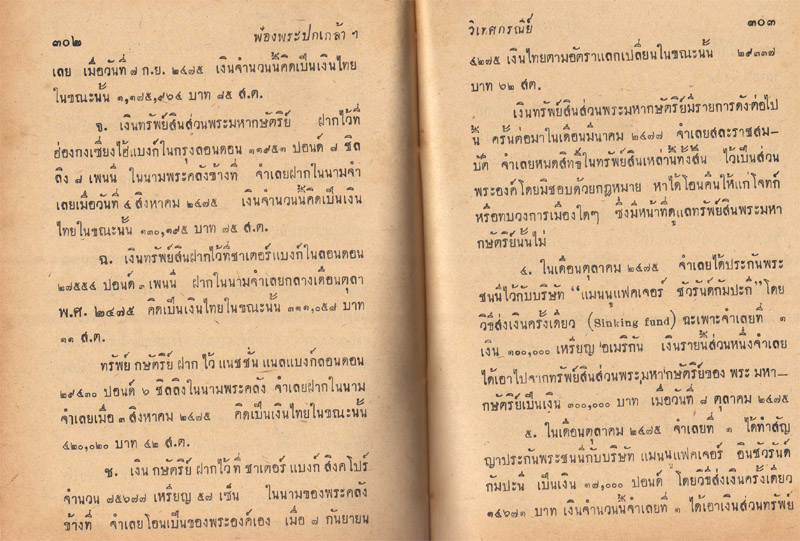 ๓๐๒ ฟ้องพระปกเกล้า ฯ
เลย เมื่อวันที่ ๗ ก.ย. ๒๔๗๕ เงินจำนวนนี้คิดเป็นเงินไทย
ในขณะนั้น ๑,๑๘๕,๙๖๔ บาท ๘๕ ส.ต.
จ. เงินทรัพย์สินส่วนพระมหากษัตริย์ ฝากไว้ที่
ฮ่องกงเซี่ยงไฮ้แบงก์ในกรุงลอนดอน ๑๑๙๕๑ ปอนด์ ๘ ชิล
ลิง ๘ เพนนี่ ในนามพระคลังข้างที่ จำเลยฝากในนามจำ
เลยเมื่อวันที่ ๔ สิงหาคม ๒๔๗๕ เงินจำนวนนี้คิดเป็นเงิน
ไทยในขณะนั้น ๑๓๐,๑๙๕ บาท ๗๕ ส.ต.
ฉ. เงินทรัพย์สินฝากไว้ที่ชาเตอร์แบงก์ในลอนดอน
๒๗๕๕๔ ปอนด์ ๓ เพนนี่ ฝากในนามจำเลยกลางเดือนตุลา
พ.ศ. ๒๔๗๕ คิดเป็นเงินไทยในขณะนั้น ๓๑๑,๐๕๘ บาท
๑๑ ส.ต.
ทรัพย์ กษัตริย์ ฝาก ไว้ แนชชั่น แนลแบงก์ลอนดอน
๒๙๔๓๐ ปอนด์ ๖ ชิลลิงในนามพระคลัง จำเลยฝากในนาม
จำเลยเมื่อ ๓ สิงหาคม ๒๔๗๕ คิดเป็นเงินไทยในขณะนั้น
๔๒๐,๐๒๐ บาท ๔๒ ส.ต.
ช. เงิน กษัตริย์ ฝากไว้ ที่ ชาเตอร์ แบงก์ สิงคโปร์
จำนวน ๗๕๖๗๗ เหรียญ ๕๗ เซ็น ในนามของพระคลัง
ข้างที่ จำเลยโอนเป็นของพระองค์เอง เมื่อ ๗ กันยายน
วิเทศกรณีย์ ๓๐๓
๔๒๗๕ เงินไทยตามอัตราแลกเปลี่ยนในขณะนั้น ๒๙๓๓๗
บาท ๖๒ สต.
เงินทรัพย์สินส่วนพระมหากษัตริย์มีรายการดังต่อไป
นี้ ครั้นต่อมาในเดือนมีนาคม ๒๔๗๗ จำเลยสละราชสม–
บัติ จำเลยหมดสิทธิ์ในทรัพย์สินเหล่านี้ทั้งสิ้น ไว้เป็นส่วน
พระองค์โดยมิชอบด้วยกฎหมาย หาได้โอนคืนให้แก่โจทก์
หรือทบวงการเมืองใดๆ ซึ่งมีหน้าที่ดูแลทรัพย์สินพระมหา
กษัตริย์นั้นไม่
๔. ในเดือนตุลาคม ๒๔๗๕ จำเลยได้ประกันพระ
ชนม์ไว้กับบริษัท "แมนนูแฟคเจอร์ ชัวรันด์กัมปะกี" โดย
วิธีส่งเงินครั้งเดียว (Sinking fund) ฉะเพาะจำเลยที่ ๑
เงิน ๑๐๐,๐๐๐ เหรียญ อเมริกัน เงินรายนี้ส่วนหนึ่งจำเลย
ได้เอาไปจากทรัพย์สินส่วนพระมหากษัตริย์ของ พระ มหา–
กษัตริย์เป็นเงิน ๓๐๐,๐๐๐ บาท เมื่อวันที่ ๘ ตุลาคม ๒๔๗๕
๕. ในเดือนตุลาคม ๒๔๗๕ จำเลยที่ ๑ ได้ทำสัญ
ญาประกันพระชนม์กับบริษัท แมนนูแฟคเจอร์ อินชัวรันด์
กัมปะนี เป็นเงิน ๑๗,๐๐๐ ปอนด์ โดยวิธีส่งเงินครั้งเดียว
๑๔๖๗๑ บาท เงินจำนวนนี้จำเลยที่ ๑ ได้เอาเงินส่วนทรัพย์